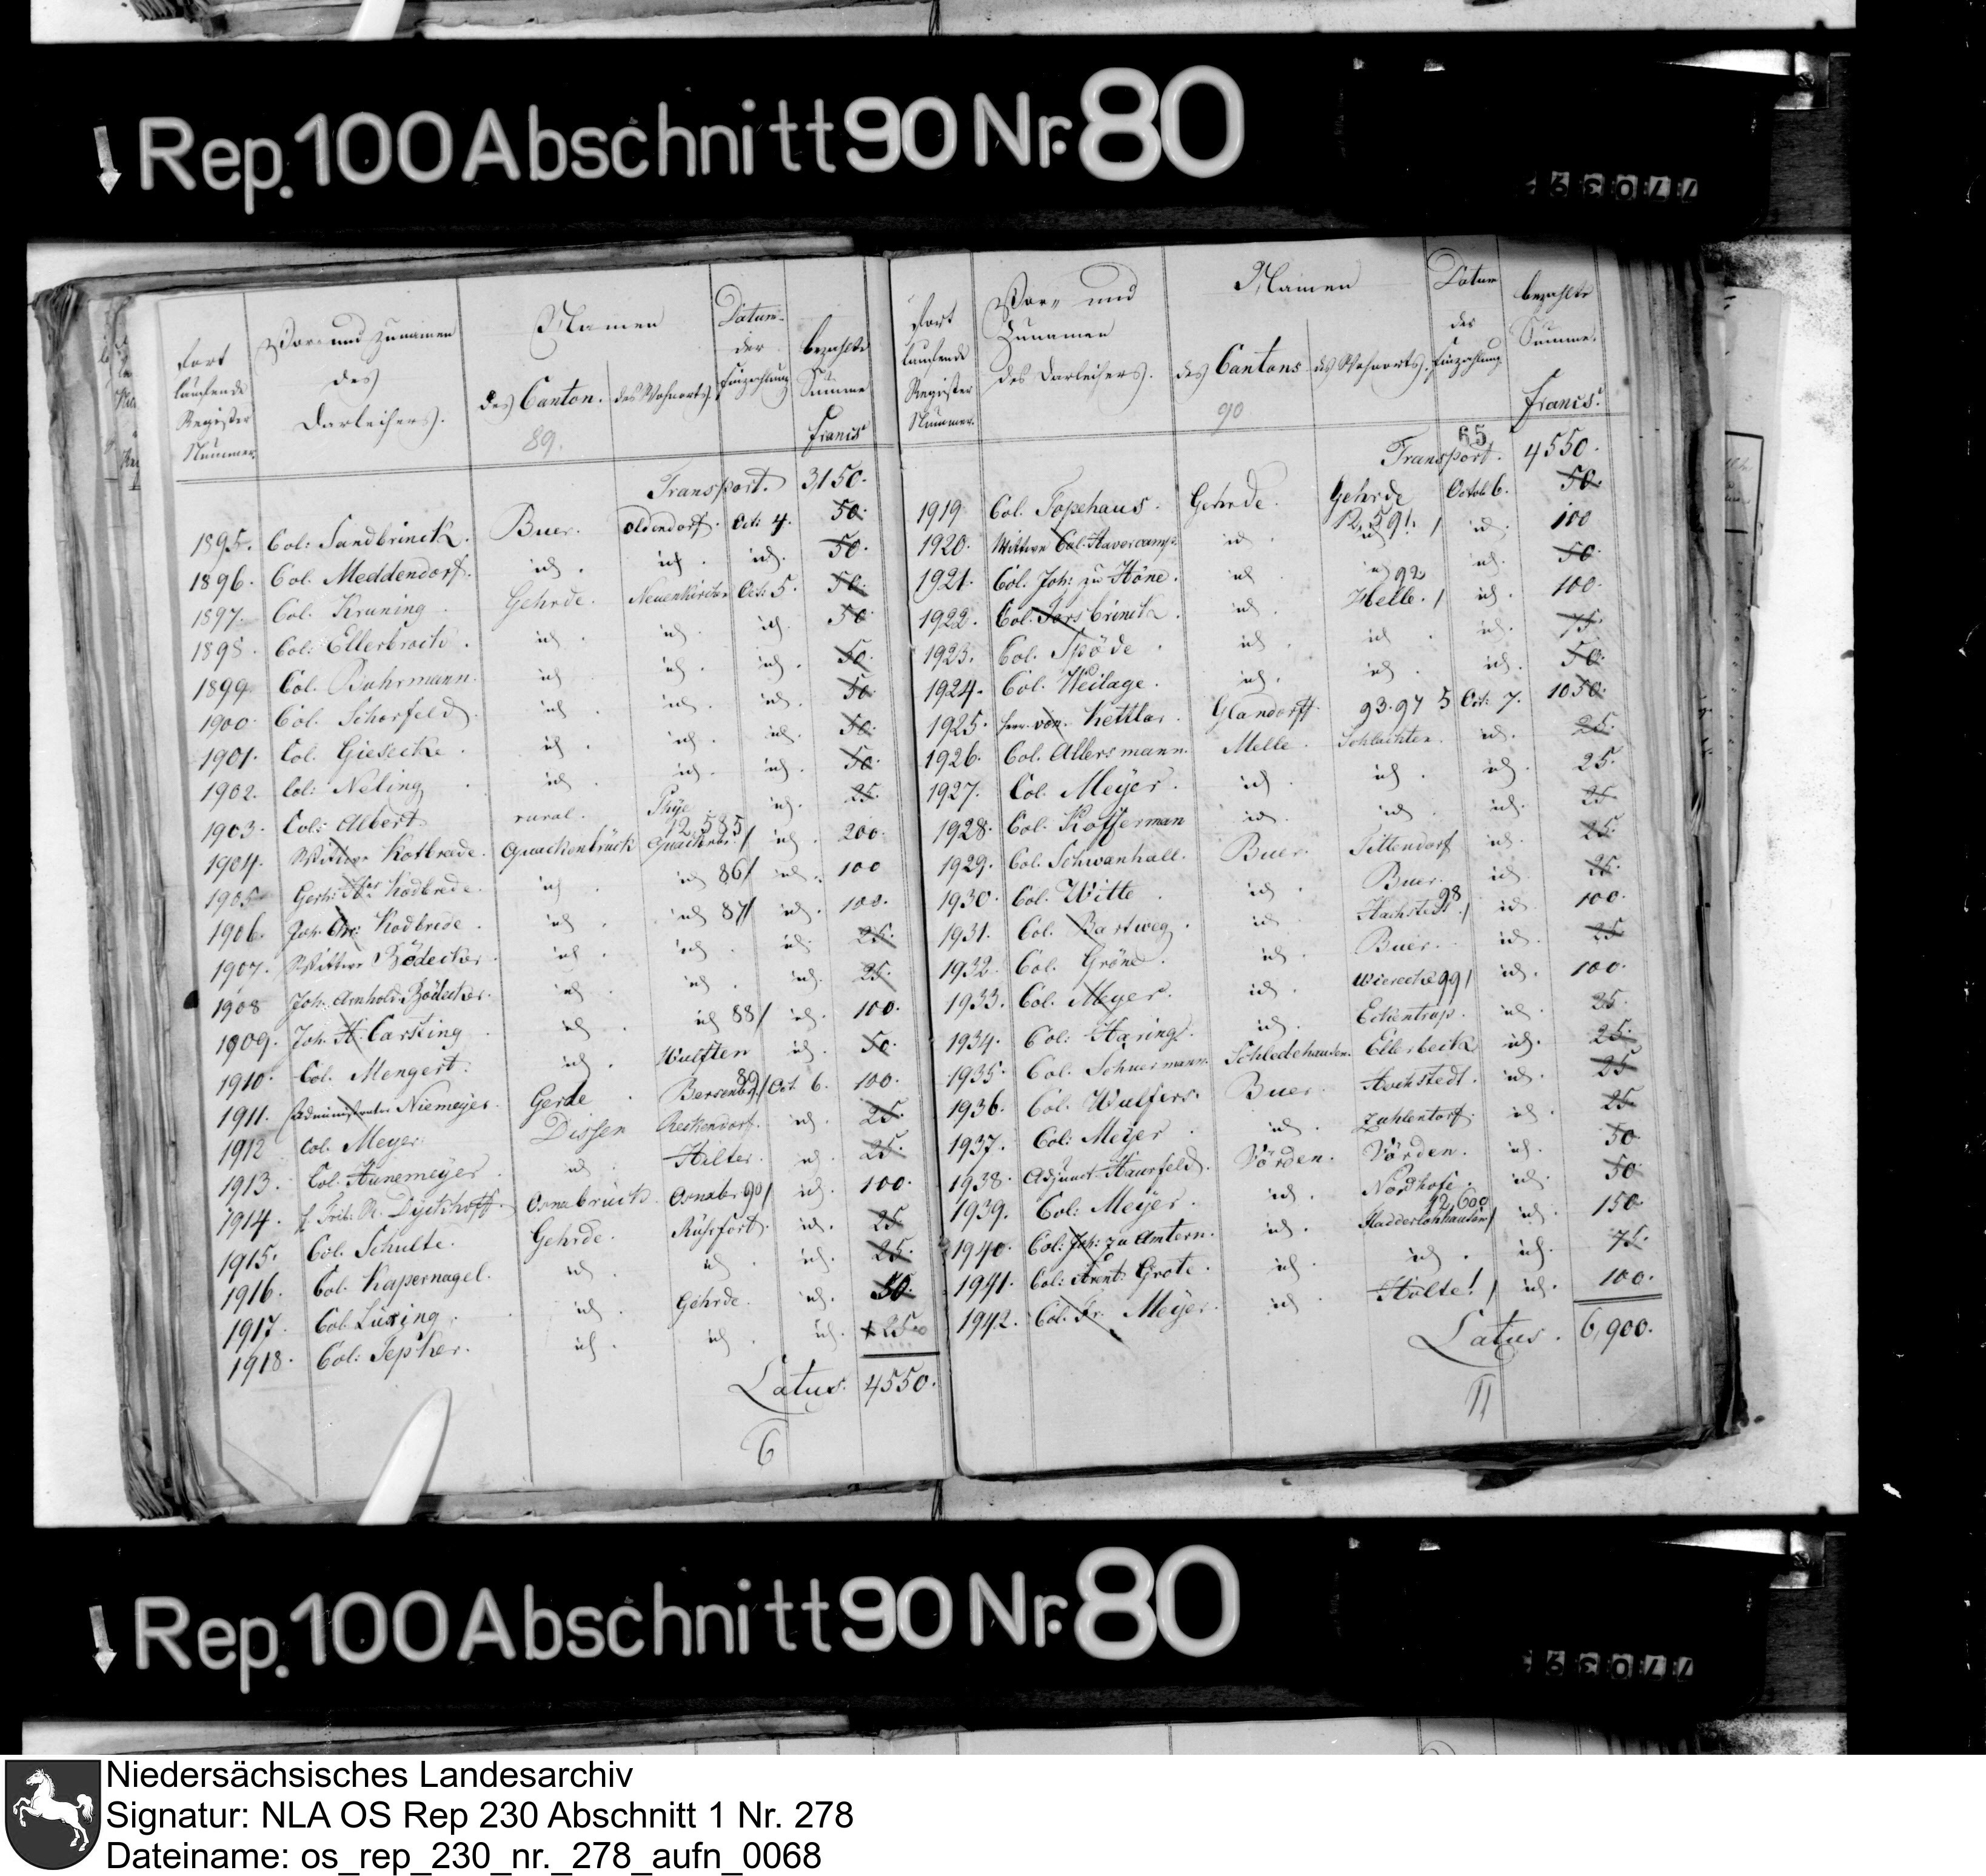 Rep. 100 Abschnitt 90 Nr. 80
77039
Fort
laufende
Register
Nummer.
Vor- und Zunamen
des
Darleihers.
Namen
des Canton.
89.
des Wohnorts.
Datum
der
Einzahlung
bezahlte
Summe
francs
Transport. 3150.
1895. Col: Sandbrinck. Buer. Oldendorf. Oct: 4. 50.
1896. Col. Meddendorf. id. id. id. 50.
1897. Col. Kruning. Gehrde. Neuenkirchen Oct: 5. 50.
1898. Col: Ellerbrock. id. id. id. 50.
1899. Col. Buhrmann. id. id. id. 50.
1900. Col. Schorfeld. id. id. id. 50.
1901. Col. Giesecke. id. id. id. 50.
1902. Col: Neling id. id. id. 50.
1903. Col: Albert rural. Thÿe id. 25.
1904. Wittwe Kotbrede. Quackenbrück Quackenbr. 12,585/ id. 200.
1905. Gerh: Kodbrede. id. id 86/ id. 100
1906. Joh. Kodbrede. id. id 87/ id. 100.
1907. Wittwe Bödecker. id. id. id. 25.
1908 Joh. Arnhold Bödecker. id. id. id. 25.
1909. Joh. H. Carsting id. id 88/ id. 100.
1910. Col. Mengert. id. Wulften id. 50.
1911. Administrator Niemeyer. Gerde. Bersenb. 89/ Oct. 6. 100.
1912 Col. Meyer. Dissen Reckendorf. id. 25.
1913. Col. Hunemeyer. id. Hilter. id. 25.
1914. Trib: R. Dyckhoff. Osnabrück. Osnabr. 90/ id. 100.
1915. Col. Schulte. Gehrde. Rüsfort. id. 25.
1916. Col. Kapernagel. id. id. id. 25.
1917. Col. Lüring. id. Gehrde. id. 50.
1918. Col: Tepker. id. id. id. 25.
Latus. 4550.
6
Fort
laufende
Register
Nummer.
Vor- und
Zunamen
des Darleihers.
Namen
des Cantons
90
des Wohnorts.
Datum
der
Einzahlung
bezahlte
Summe.
francs.
65
Transport. 4550.
1919 Col. Topehaus. Gehrde. Gehrde Octob 6. 50.
1920. Wittwe Col. Havercamp. id. id 12,591./ id. 100
1921. Col. Joh: zu Höne. id. id id. 50.
1922. Col. Forsbrinck. id. Helle. 92/ id. 100.
1923. Col. Spöde. id. id. id. 75.
1924. Col. Weilage. id. id. id. 50.
1925. Herr von Kettler. Glandorff. 93.97 5 Oct: 7. 1050.
1926. Col. Allersmann. Melle. Schlochter. id. 25.
1927. Col. Meyer. id. id. id. 25.
1928. Col. Kofferman id. id. id. 25
1929. Col. Schwanhall. Buer. Tittendorf id. 25.
1930. Col. Witte id. Buer. id. 25.
1931. Col. Bartweg. id. Huchstedt. 98/ id. 100.
1932. Col. Gröne. id. Buer. id. 25
1933. Col. Meyer. id. 99/ id. 100.
1934. Col: Haring. id. Eickentrup. id. 25.
1935. Col. Schuermann. Schledehausen. Ellerbeck id. 25.
1936. Col. Wulfers. Buer. Huchstedt. id. 25
1937. Col: Meyer. id. id. 25.
1938. Adjunct Haurfeld. Vörden. Vörden. id. 50
1939. Col: Meyer. id. Nordhofe. id. 50.
1940. Col: Joh: zu Amtern. id. 12,600/ id. 150
1941. Col: Arent: Grote. id. id. id. 75.
1942. Col. Fr. Meyer. id. Holte! / id. 100.
Latus. 6,900.
11
Rep. 100 Abschnitt 90 Nr. 80
77039
Niedersächsisches Landesarchiv
Signatur: NLA OS Rep 230 Abschnitt 1 Nr. 278
Dateiname: os_rep_230_nr._278_aufn_0068